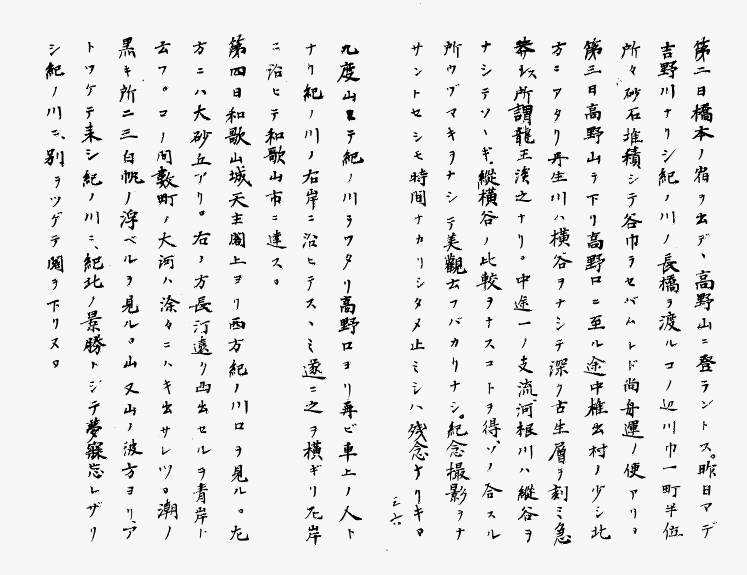 第二日橋本ノ宿ヲ出デ、高野山ニ登ラントス。昨日マデ
吉野川ナリシ紀ノ川ノ長橋ヲ渡ルコノ辺川巾一町半位
所々砂石堆積シテ谷巾ヲセバムレド尚舟運ノ便アリ。
第三日高野山ヲ下リ高野口ニ至ル途中椎出村ノ少シ北
方ニアタリ丹生川ハ横谷ヲナシテ深ク古生層ヲ刻ミ急
所謂龍王渓之ナリ。中途一ノ支流河根川ハ縦谷ヲ
ナシテソヽギ、縦横谷ノ比較ヲナスコトヲ得ソノ合スル
所ウヅマキヲナシテ美観云フバカリナシ。紀念撮影ヲナ
サントセシモ時間ナカリシタメ止ミシハ残念ナリキ。
三六
九度山ニテ紀ノ川ヲワタリ高野口ヨリ再ビ車上ノ人ト
ナリ紀ノ川ノ右岸ニ沿ヒテスヽミ遂ニ之ヲ横ギリ左岸
ニ沿ヒテ和歌山市ニ達ス。
第四日和歌山城天主閣上ヨリ西方紀ノ川口ヲ見ル。左
方ニハ大砂丘アリ。右ノ方長汀遠ク凸出セルヲ青岸ト
云フ。コノ間数町ノ大河ハ滁々ニハキ出サレツ。潮ノ
黒キ所二三白帆ノ浮ベルヲ見ル。山又山ノ彼方ヨリア
トツケテ来シ紀ノ川ニ、紀北ノ景勝トシテ夢寐忘レザリ
シ紀ノ川ニ、別ヲツゲテ閣ヲ下リヌ。